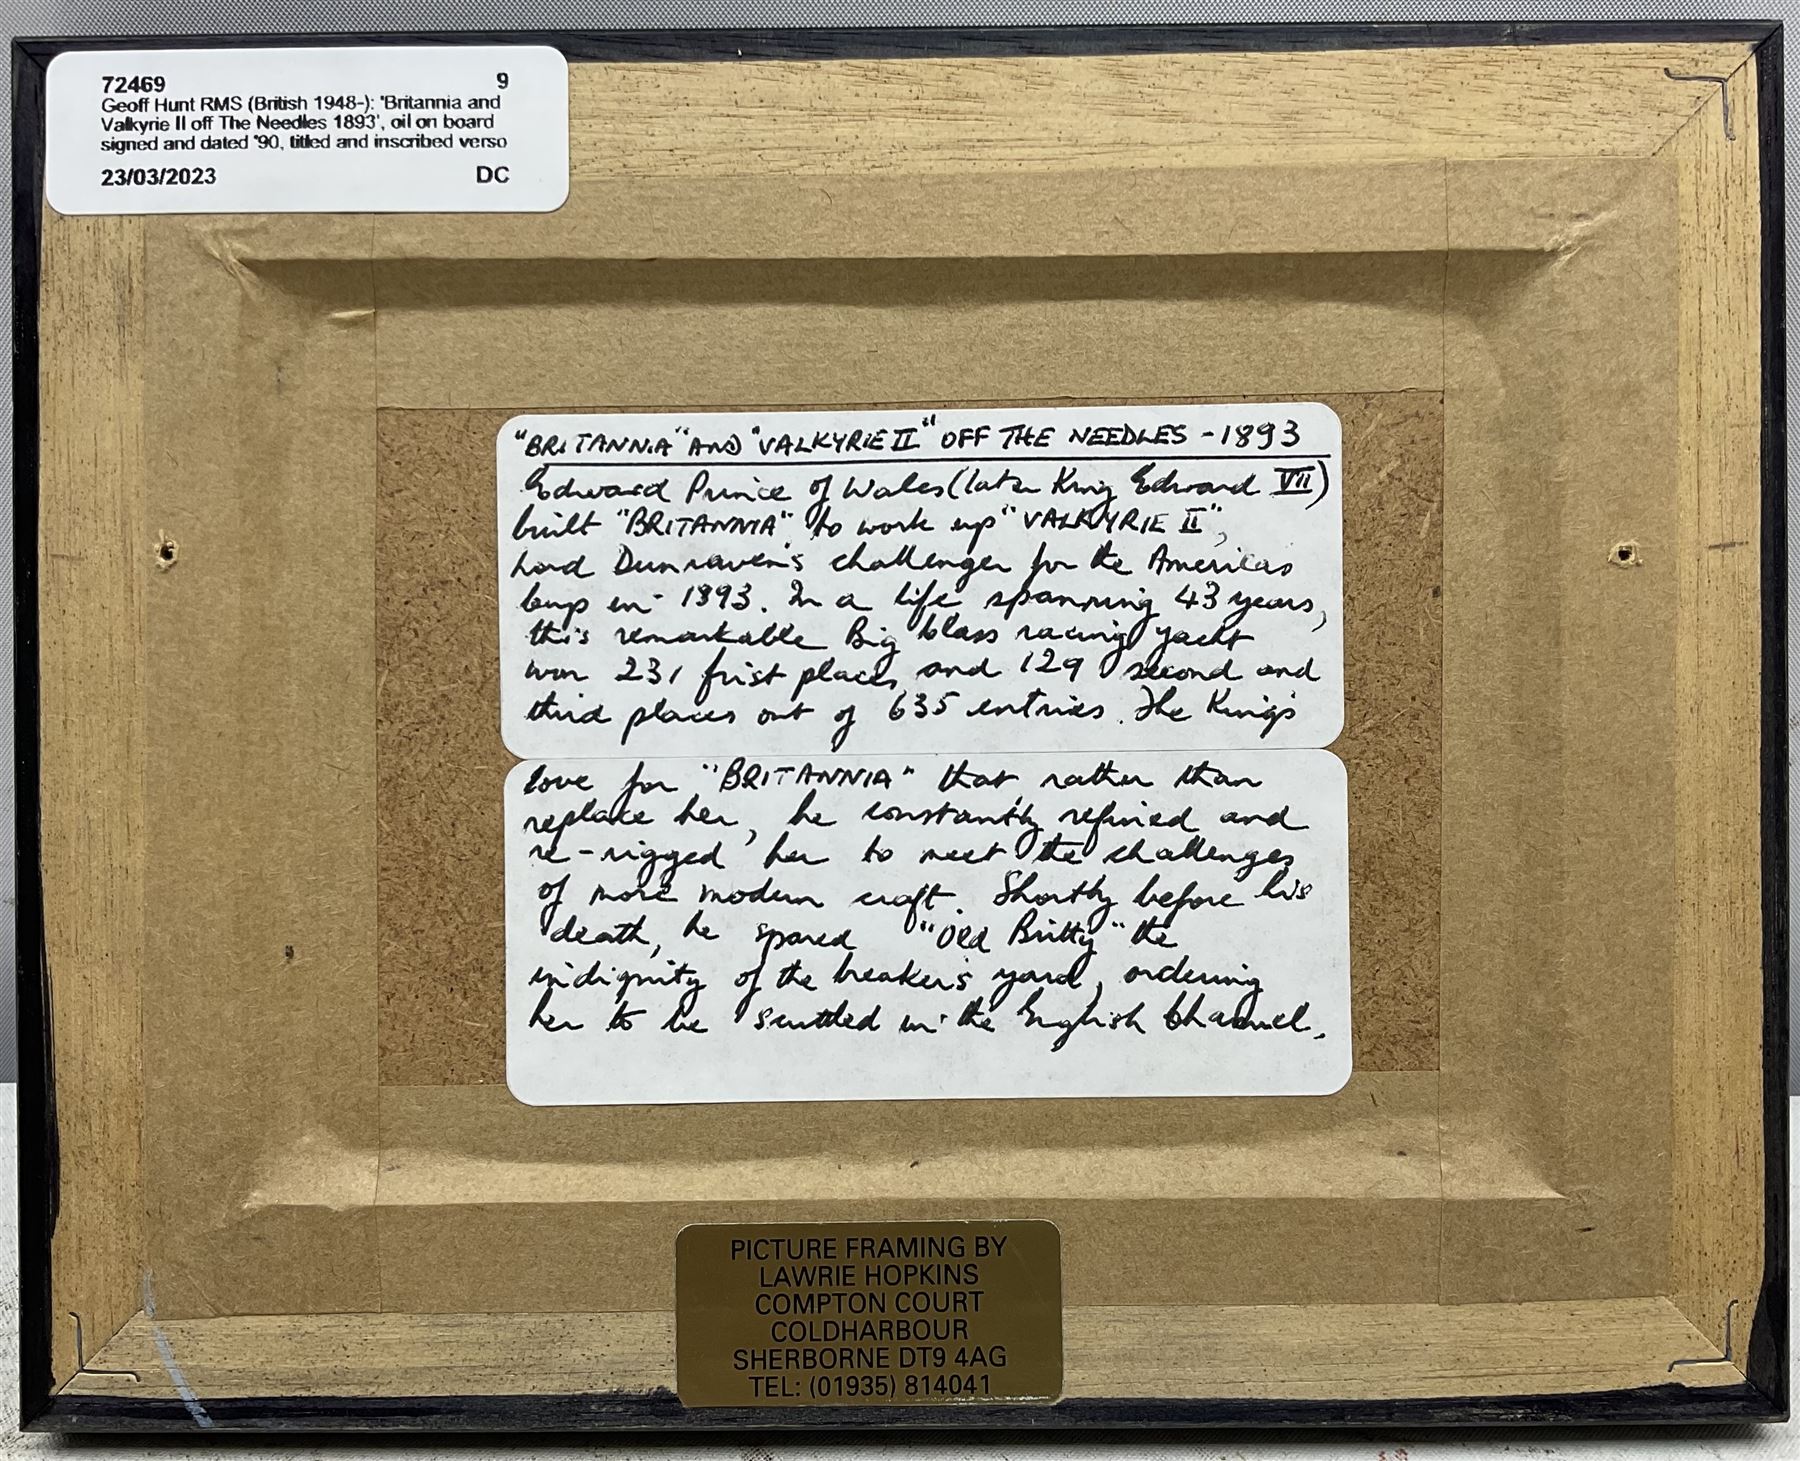 72469 9
Geoff Hunt RMS (British 1948-): 'Britannia and
Valkyrie II off The Needles 1893', oil on board
signed and dated '90, titled and inscribed verso
23/03/2023 DC
"BRITANNIA" AND "VALKYRIE II" OFF THE NEEDLES - 1893
Edward Prince of Wales (later King Edward VII)
built "BRITANNIA" to work up "VALKYRIE II",
Lord Dunraven's challenger for the Americas
Cup in 1893. In a life spanning 43 years,
this remarkable Big Class racing yacht
won 231 first places and 129 second and
third places out of 635 entries. The King's
love for "BRITANNIA" that rather than
replace her, he constantly refined and
re-rigged her to meet the challenges
of more modern craft. Shortly before his
death, he spared "Old Britty" the
indignity of the breaker's yard, ordering
her to be scuttled in the English Channel.
PICTURE FRAMING BY
LAWRIE HOPKINS
COMPTON COURT
COLDHARBOUR
SHERBORNE DT9 4AG
TEL: (01935) 814041